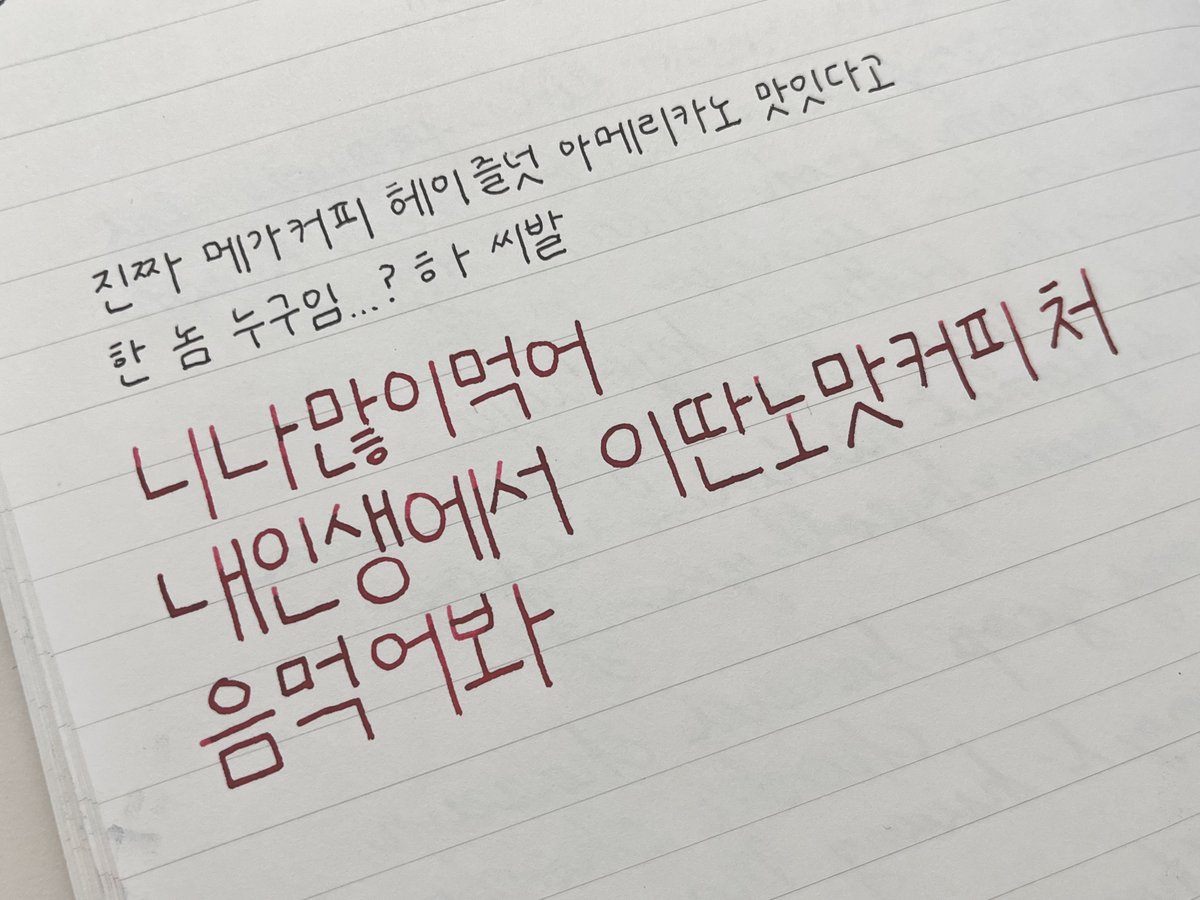 진짜 메가커피 헤이즐넛 아메리카노 맛잇다고
한 놈 누구임...? 하 씨발
니나많이먹어
내인생에서 이딴노맛커피처
음먹어봐